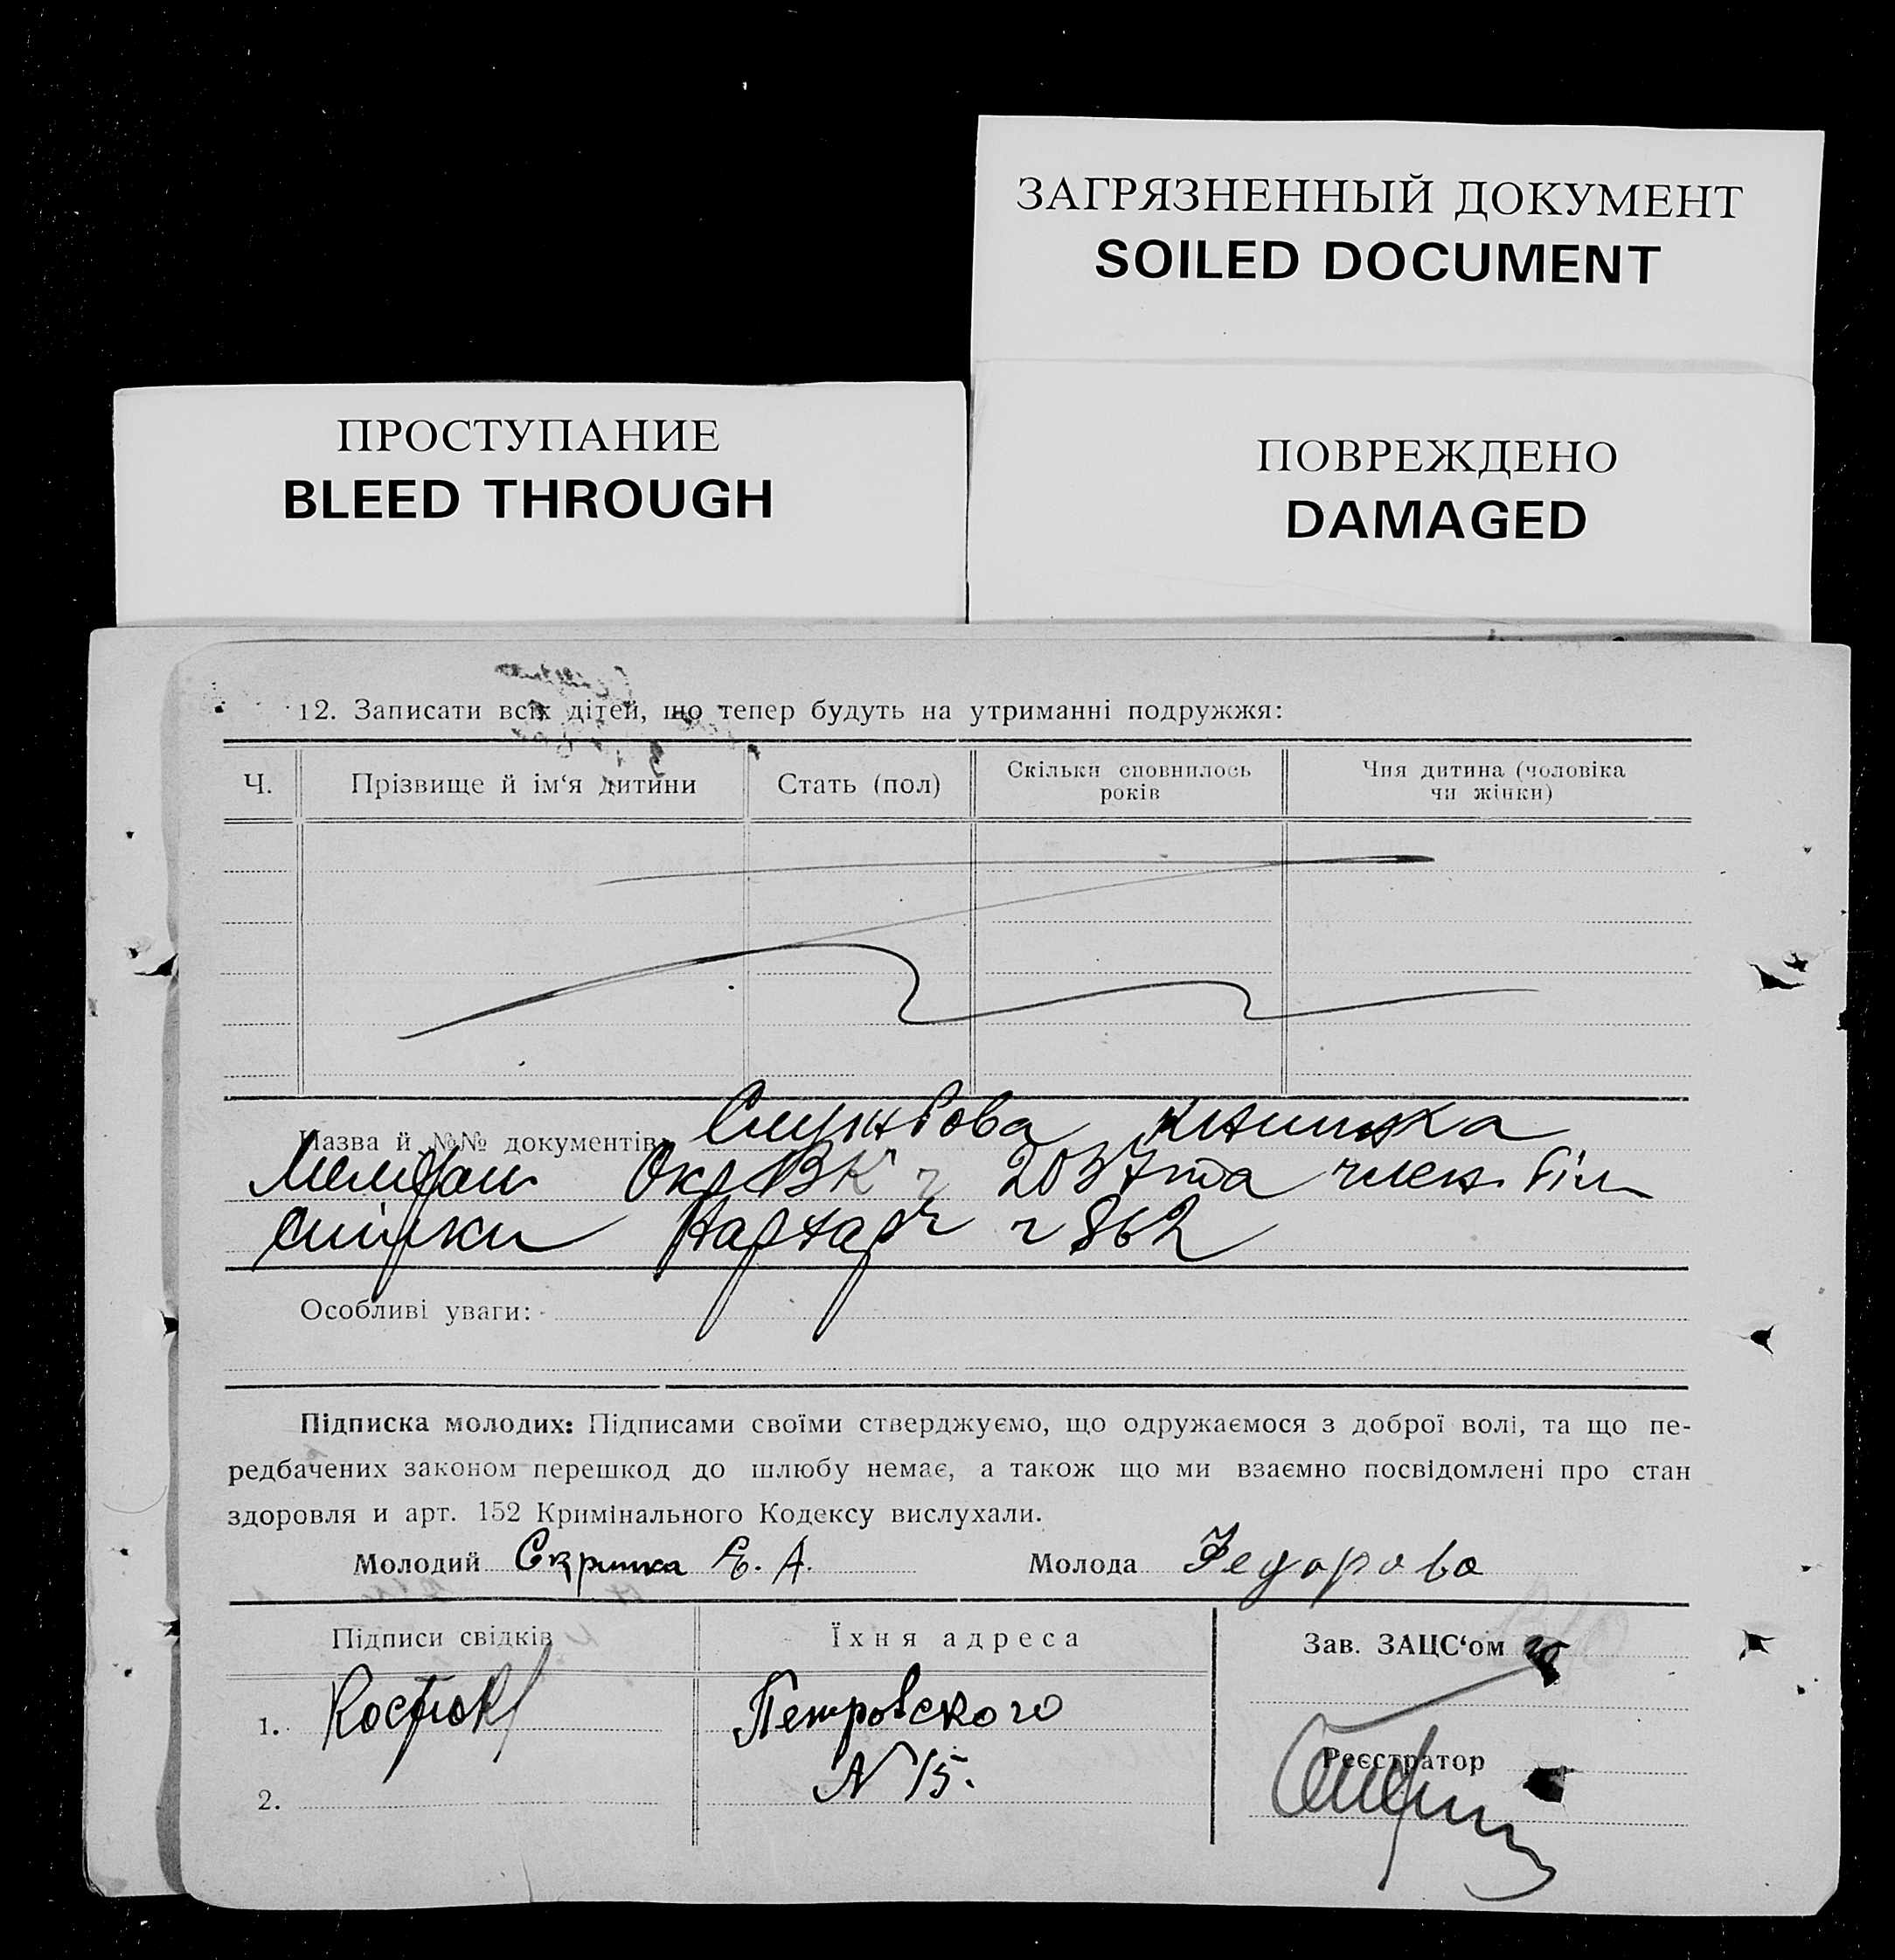 ЗАГРЯЗНЕННЫЙ ДОКУМЕНТ
SOILED DOCUMENT
ПРОСТУПАНИЕ
BLEED THROUGH
ПОВРЕЖДЕНО
DAMAGED
12. Записати всіх дітей, що тепер будуть на утриманні подружжя:
Ч.
Прізвище й ім‘я дитини
Стать (пол)
Скільки сповнилось
років
Чия дитина (чоловіка
чи жінки)
Назва й №№ документів: книжка
2037 та член. біл
спілки ч 862
Особливі уваги:
Підписка молодих: Підписами своїми стверджуємо, що одружаємося з доброї волі, та що пе-
редбачених законом перешкод до шлюбу немає, а також що ми взаємно посвідомлені про стан
здоровля и арт. 152 Кримінального Кодексу вислухали.
Молодий Скрипка Е. А. Молода Федорова
Підписи свідків
Їхня адреса
Зав. ЗАЦС‘ом
1. Костюк
Петровского
N 15.
Реєстратор
2.